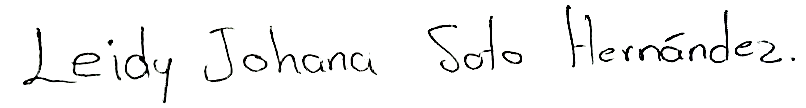 Leidy Johana Soto Hernández.